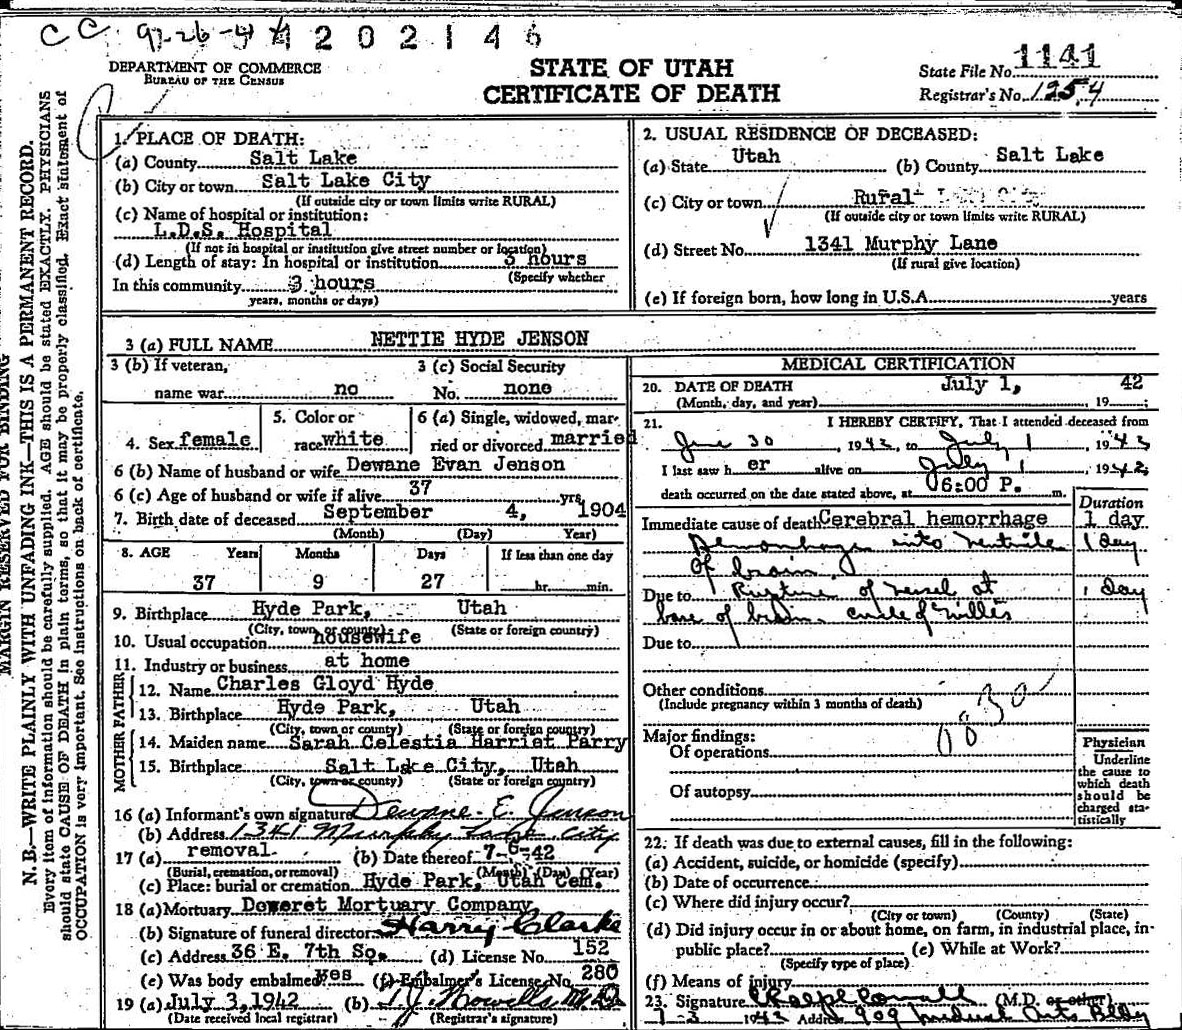 CC 9-26-44
4202146
DEPARTMENT OF COMMERCE
BUREAU OF THE CENSUS
STATE OF UTAH
CERTIFICATE OF DEATH
State File No. 1141
Registrar's No. 1254
MARGIN RESERVED FOR BINDING
N. B.—WRITE PLAINLY WITH UNFADING INK—THIS IS A PERMANENT RECORD.
Every item of information should be carefully supplied. AGE should be stated EXACTLY. PHYSICIANS
should state CAUSE OF DEATH in plain terms, so that it may be properly classified. Exact statement of
OCCUPATION is very important. See instructions on back of certificate.
1. PLACE OF DEATH:
(a) County Salt Lake
(b) City or town Salt Lake City
(If outside city or town limits write RURAL)
(c) Name of hospital or institution:
L.D.S. Hospital
(If not in hospital or institution give street number or location)
(d) Length of stay: In hospital or institution 3 hours
(Specify whether
In this community 3 hours
years, months or days)
2. USUAL RESIDENCE OF DECEASED:
(a) State Utah (b) County Salt Lake
(c) City or town Rural
(If outside city or town limits write RURAL)
(d) Street No. 1341 Murphy Lane
(If rural give location)
(e) If foreign born, how long in U.S.A. years
3 (a) FULL NAME NETTIE HYDE JENSON
3 (b) If veteran, 3 (c) Social Security
name war no No. none
4. Sex female 5. Color or race white 6 (a) Single, widowed, married or divorced married
6 (b) Name of husband or wife Dewane Evan Jenson
6 (c) Age of husband or wife if alive 37 yrs.
7. Birth date of deceased September 4, 1904
(Month) (Day) Year)
8. AGE Years Months Days If less than one day
37 9 27 hr. min.
9. Birthplace Hyde Park, Utah
(City, town or county) (State or foreign country)
10. Usual occupation housewife
11. Industry or business at home
FATHER
12. Name Charles Gloyd Hyde
13. Birthplace Hyde Park, Utah
(City, town or county) (State or foreign country)
MOTHER
14. Maiden name Sarah Celestia Harriet Parry
15. Birthplace Salt Lake City, Utah
(City, town or county) (State or foreign country)
16 (a) Informant's own signature Dewane E. Jenson
(b) Address 1341 Murphy Lane City
17 (a) removal (b) Date thereof 7-6-42
(Burial, cremation, or removal) (Month) (Day) (Year)
(c) Place: burial or cremation Hyde Park, Utah Cem.
18 (a) Mortuary Deweret Mortuary Company
(b) Signature of funeral director Harry Clarke
(c) Address 36 E. 7th So. (d) License No. 152
(e) Was body embalmed? yes (f) Embalmer's License No. 280
19 (a) July 3, 1942 (b) T.J. Howells M.D.
(Date received local registrar) (Registrar's signature)
MEDICAL CERTIFICATION
20. DATE OF DEATH July 1, 42
(Month, day, and year) 19 ;
21. I HEREBY CERTIFY, That I attended deceased from
June 30, 1942, to July 1, 1942
I last saw her alive on July 1 1942;
death occurred on the date stated above, at 6:00 P. m.
Duration
Immediate cause of death Cerebral hemorrhage 1 day
Hemorrhage into ventricle 1 day
of brain.
Due to Rupture of vessel at 1 day
base of brain circle of Willis
Due to
Other conditions
(Include pregnancy within 3 months of death)
Major findings:
Of operations
Of autopsy
Physician
Underline
the cause to
which death
should be
charged sta-
tistically
22. If death was due to external causes, fill in the following:
(a) Accident, suicide, or homicide (specify)
(b) Date of occurrence
(c) Where did injury occur?
(City or town) (County) (State)
(d) Did injury occur in or about home, on farm, in industrial place, in
public place? (e) While at Work?
(Specify type of place)
(f) Means of injury
23. Signature (M.D. or other)
7-3 1942 Address 909 Medical Arts Bldg